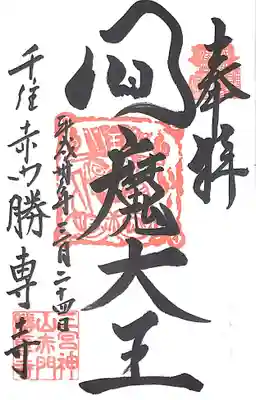 奉拝
閻魔大王
平成廿年三月二十四日
千住赤門勝専寺
三宮神
山赤門
勝専寺